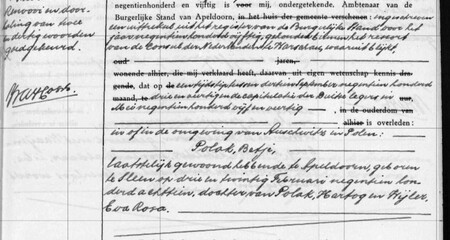 Renvooi en door-
haling van twee
en dertig woorden
goedgekeurd.
negentienhonderd en vijftig is voor mij, ondergetekende. Ambtenaar van de
Burgerlijke Stand van Apeldoorn, in het huis der gemeente verschenen: ingeschreven
een uittreksel uit het register van de Burgerlijke Stand over het
jaar negentienhonderd vijftig, gehouden binnen het ressort
van de Consul der Nederlanden te Warschau, waaruit blijkt,
oud jaren,
wonende alhier, die mij verklaard heeft, daarvan uit eigen wetenschap kennis dra-
gende, dat op de een dertig september negentien honderd
maand, te drie en veertig en de capitulatie des Duitse legers in
Mei negentienhonderd vijf en veertig in de ouderdom van
alhier is overleden:
in of in de omgeving van Auschwitz in Polen:
Polak, Betje,
laatstelijk gewoond hebbende te Apeldoorn, geboren
te Sleen op drie en twintig Februari negentien hon-
derd achttien, dochter van Polak, Hartog en Wijler,
Eva Rosa.